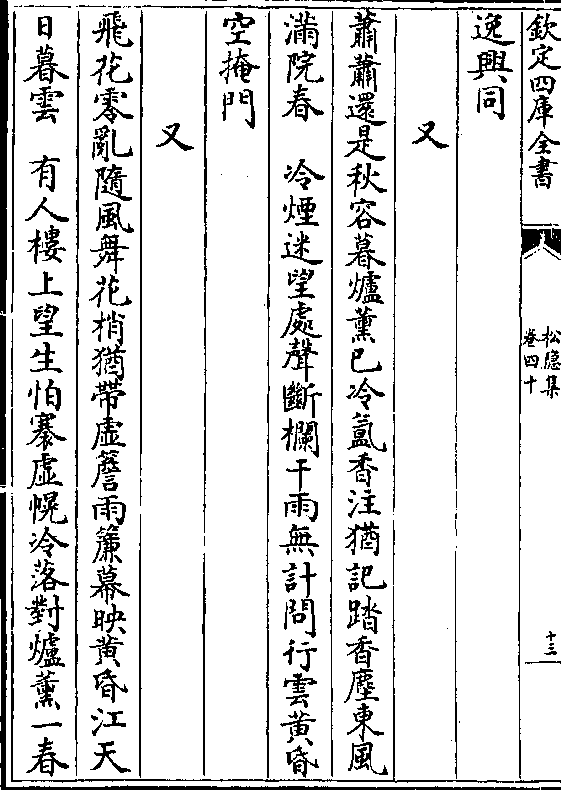 欽定四庫全書
松隱集
卷四十
十三
逸興同
又
蕭蕭還是秋容暮爐薰已冷氲香注猶記踏香塵東風
滿院春　冷煙迷望處聲斷欄干雨無計問行雲黄昏
空掩門
又
飛花零亂隨風舞花梢猶帶虛簷雨簾幕映黄昏江天
日暮雲　有人樓上望生怕褰虛幌冷落對爐薰一春